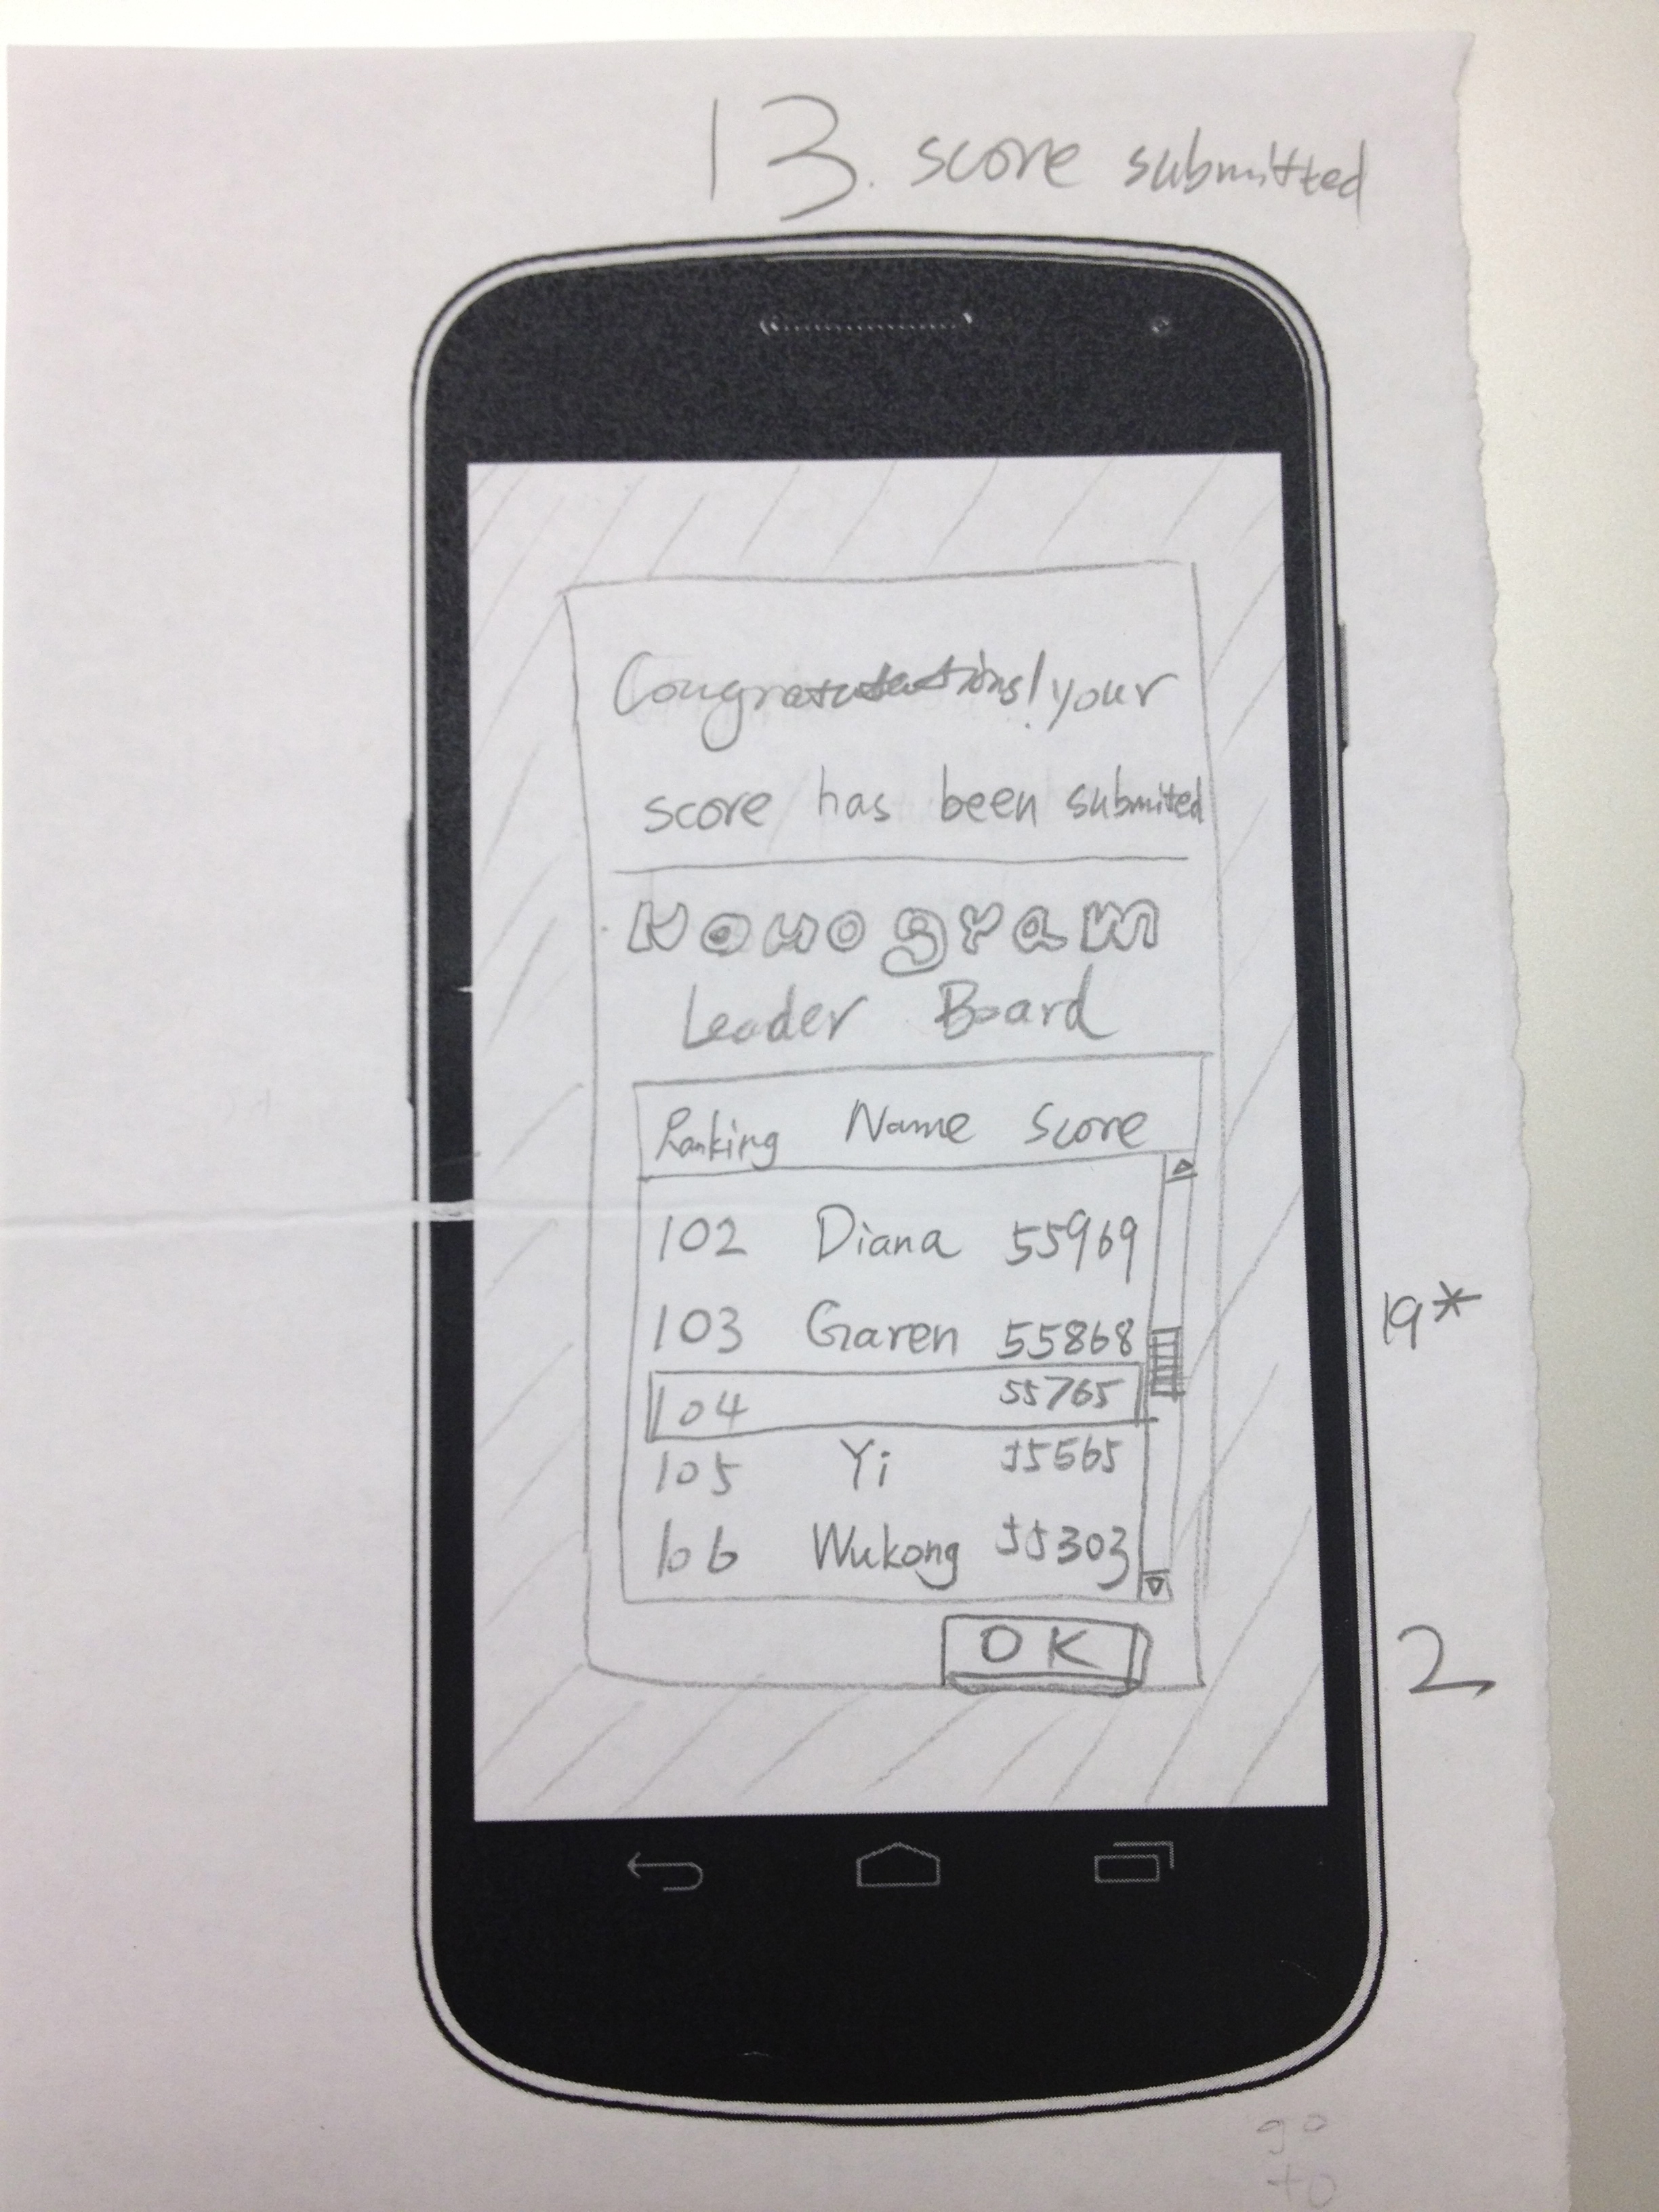 13. score submitted
Congratulations! your
score has been submited
Nonogram
Leader Board
Ranking Name Score
102 Diana 55969
103 Garen 55868
19*
104 55765
105 Yi 55565
106 Wukong 55303
OK
2
go
to